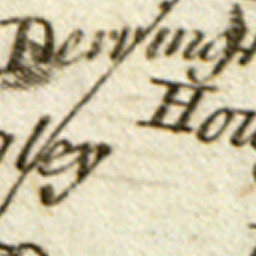 Derwingh
Hou
ley